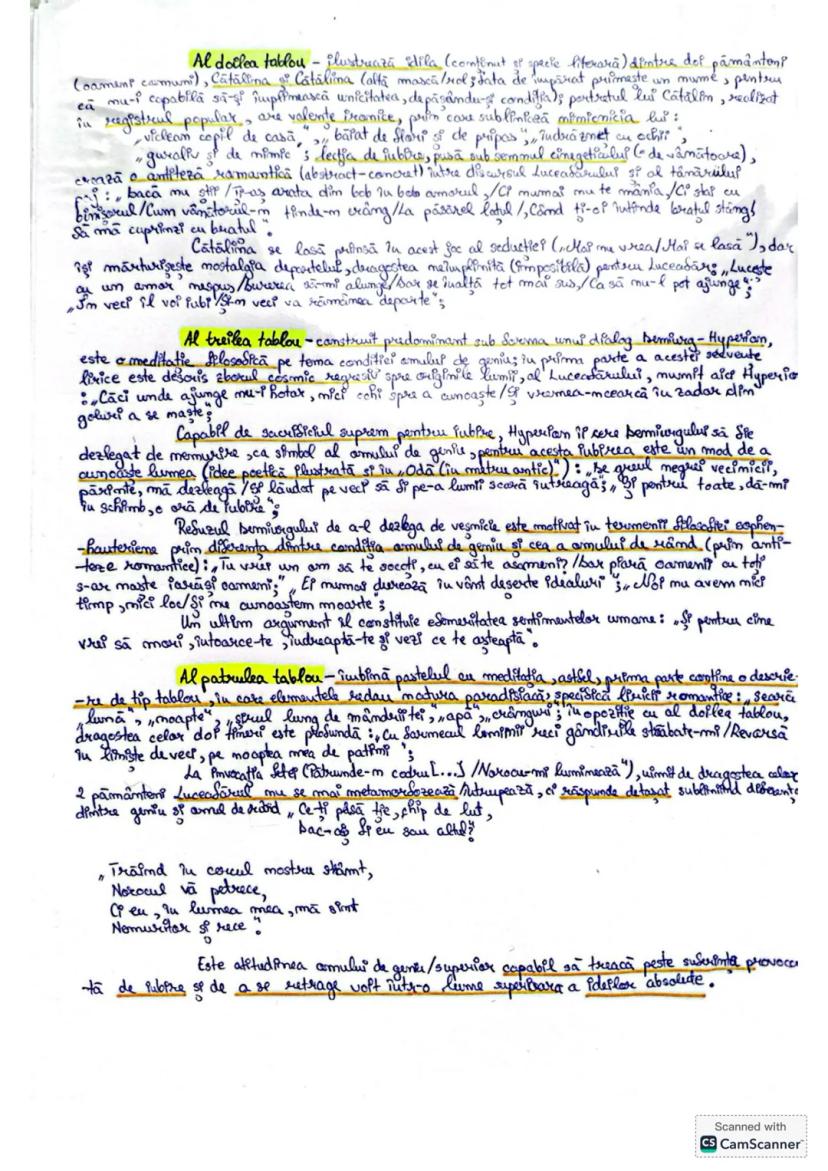 Al doilea tablou – ilustrează idila (conținut și specie literară) dintre doi pământeni
(oameni comuni), Cătălina și Cătălin (altă mască/rol; fata de împărat primește un nume, pentru
că nu-i capabilă să-și împlinească unicitatea, depășându-și condiția); portretul lui Cătălin, realizat
în registrul popular, are valențe ironice, prin care subliniază mimicia lui:
„viclean copil de casă”, „băiat de flori și de pripas”, „îndrăzneț cu ochii”,
„guraliv și de nimic”; lecția de iubire, pusă sub semnul cinegeticului (= de vânătoare),
crează o antiteză romantică (abstract-concret) între discursul Luceafărului și al tânărului
paj: „Dacă nu știi/ți-aș arăta din bob în bob amorul,/Ci numai nu te mânia,/Ci stai cu
binișorul/Cum vânătorul-n tinde-n crâng/La păsărele lațul/,Când ți-oi întinde brațul stâng/
Să mă cuprinzi cu brațul”.
Cătălina se lasă prinsă în acest joc al seducției („Mai nu vrea/Mai se lasă”), dar
își mărturisește nostalgia departelui, dragostea neîmplinită (imposibilă) pentru Luceafăr: „Lucește
cu un amor nespus/Durerea să-mi alunge/Dar se înalță tot mai sus,/Ca să nu-l pot ajunge”;
„În veci îl voi iubi/Și-n veci va rămânea departe”;
Al treilea tablou – construit predominant sub forma unui dialog Demiurg-Hyperion,
este o meditație filosofică pe tema condiției omului de geniu; în prima parte a acestei secvențe
lirice este descris zborul cosmic regresiv spre originile lumii, al Luceafărului, numit aici Hyperio
: „Căci unde ajunge nu-i hotar, nici ochi spre a cunoaște/Și vremea-ncearcă în zadar din
goluri a se naște”;
Capabil de sacrificiul suprem pentru iubire, Hyperion îi cere Demiurgului să fie
dezlegat de nemurire, ca simbol al omului de geniu, pentru acesta iubirea este un mod de a
cunoaște lumea (idee poetică ilustrată și în „Odă (în metru antic)”): „De greul negrei vecinicii,
părinte, mă dezleagă/Și lăudat pe veci să fi pe-a lumii scară întreagă”; „Și pentru toate, dă-mi
în schimb, o oră de iubire”;
Refuzul Demiurgului de a-l dezlega de veșnicie este motivat în termenii filosofiei sophen-
-haueriene prin diferența dintre condiția omului de geniu și cea a omului de rând (prin anti-
-teze romantice): „Tu vrei un om să te socoți, cu ei să te asameni?/Dar piară oamenii cu toți
s-ar naște iarăși oameni;” „Ei numai durează în vânt deșerte idealuri”; „Noi nu avem nici
timp, nici loc/Și nu cunoaștem moarte”;
Un ultim argument îl constituie efemeritatea sentimentelor umane: „Și pentru cine
vrei să mori, întoarce-te, îndreaptă-te și vezi ce te așteaptă”.
Al patrulea tablou – îmbină pastelul cu meditația, astfel, prima parte conține o descrie-
-re de tip tablou, în care elementele redau natura paradisiacă, specifică liricii romantice: „seară
„lună”, „noapte”, „șirul lung de mândri tei”, „apă”, „crânguri”; în opoziție cu al doilea tablou,
dragostea celor doi tineri este profundă: „Cu farmecul luminii reci gândirile străbate-mi/Revarsă
în liniște de veci, pe noaptea mea de patimi”;
La invocația fetei (Pătrunde-n codru[...]/Norocu-mi luminează”), uimit de dragostea celor
2 pământeni Luceafărul nu se mai metamorfozează/întrupează, ci răspunde detașat subliniind diferența
dintre geniu și omul de rând „Ce-ți pasă ție, chip de lut,
Dac-oi fi eu sau altul?
„Trăind în cercul nostru strâmt,
Norocul vă petrece,
Ci eu, în lumea mea, mă simt
Nemuritor și rece”.
Este atitudinea omului de geniu/superior capabil să treacă peste suferința provoca
-tă de iubire și de a se retrage voit într-o lume superioară a ideilor absolute.
Scanned with
CS CamScanner